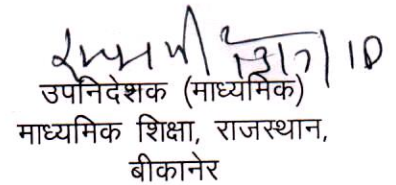 उपनिदेशक (माध्यमिक)
माध्यमिक शिक्षा, राजस्थान,
बीकानेर